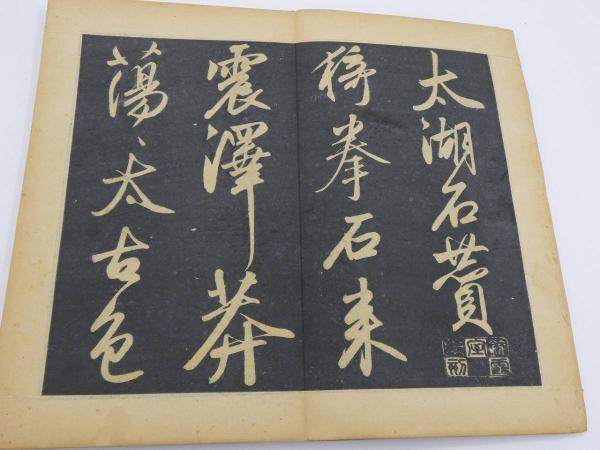 太湖石贊
猗拳石来
震澤莽
蕩〻太古色